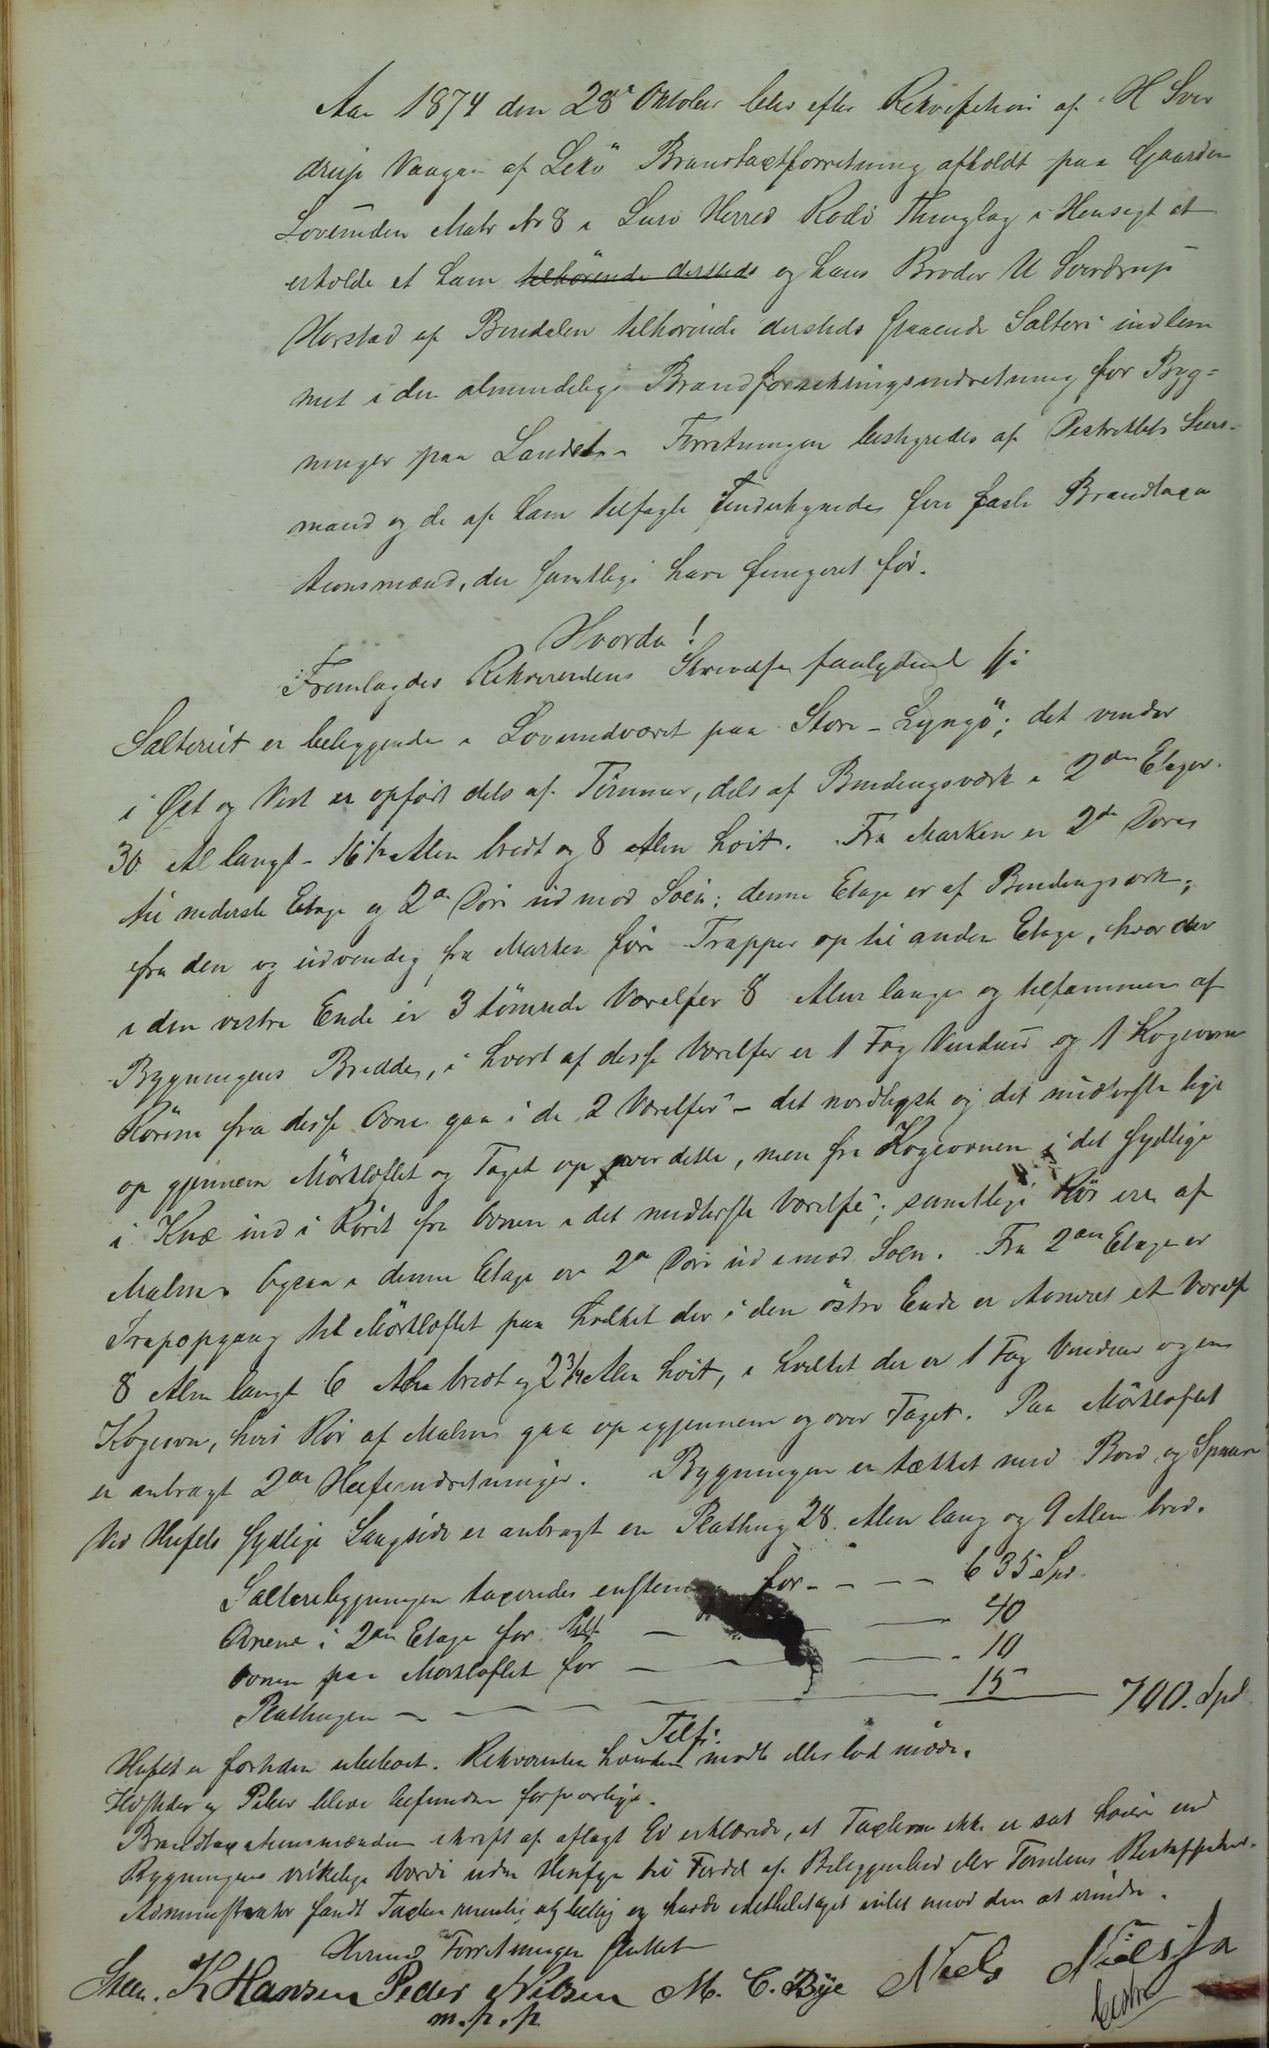 Aar 1874 den 28de Oktober blev efter Rekvisition af H Sver
drup Vaagan af Lekö Brandtaxtforretning afholdt paa Gaarden
Lovunden Matr No 8 i Lurö Herred Rödö Thinglag i Hensigt at
erholde et ham tilhörende dersteds og hans Broder U Sverdrup
Horstad af Bindalen tilhörende dersteds staaende Salteri indlem
met i den almindelige Brandforsikringsindretning for Byg-
ninger paa Landet. Forretningen bestyredes af Distriktets Lens-
mand og de af ham tilsagte Tinderkyndes fire faste Brandtaxa
tionsmænd, der samtlige have fungeret för.
Hvorda!
Fremlagdes Rekvirentens Skrivelse saalydende //:
Salteriet er beliggende i Lovundværet paa Store-Lyngö; det vender
i Öst og Vest er opfört dels af Tömmer, dels af Bindingsværk i 2de Etager
30 Al langt - 16 1/2 Alen bredt og 8 Alen höit. Fra Marken er 2de Döre
til nederste Etage og 2de Döre ud mod Söen; denne Etage er af Bindingsverk;
fra den og udvendig fra Marken före Trapper op til anden Etage, hvor der
i den vestre Ende er 3 tömrede Værelser 8 Alen lange og tilsammen af
Bygningens Bredde, i hvert af disse Værelser er 1 Fag Vinduer og 1 Kogeovn
Rörene fra disse Ovne gaa i de 2 Værelser - det nordligste og det midterste lige
op gjennem Mörkloftet og Taget op over dette, men fra Kogeovnen i det sydlige
i Knæ ind i Röret fra Ovnen i det midterste Værelse; samtlige Rör ere af
Malm. Ogsaa i denne Etage ere 2de Döre ud imod Söen. Fra 2den Etage er
Trapopgang til Mörkloftet paa hvilket der i den östre Ende er tömret et Værelse
8 Alen langt 6 Alen bredt og 2 3/4 Alen höit, i hvilket der er 1 Fag Vinduer og en
Kogeovn, hvis Rör af Malm gaa op igjennem og over Taget. Paa Mörkloftet
er anbragt 2de Heiseindretninger. Bygningen er tækket med Bord og Spaan
Ved Husets sydlige Langside er anbragt en Plathing 28 Alen lang og 9 Alen bred.
Salteribygningen taxeredes enstem for - - - - 635 Spd.
Ovnene i 2den Etage for tils. — — — 40
Ovnen paa Mörkloftet for — — — 10
Plathingen — — — 15
Tils. 700. Spd
Huset er fortiden ubeboet. Rekvirenten hverken mödte eller lod möde.
Ildsteder og Piber bleve befundne forsvarlige.
Brandtaxationsmændene i kraft af aflagt Ed erklærede, at Taxterne ikke er sat höiere end
Bygningens virkelige Værdi uden Hensyn til Fordel af Beliggenhed eller Tomtens Beskaffenhed.
Administrator fandt Taxten rimelig og billig og havde ikke intet imod den at erindre.
Hermed Forretningen sluttet
Steen. K Hansen Peder Nilsen M. C. Bye Niels Nielssa
m. p. p.